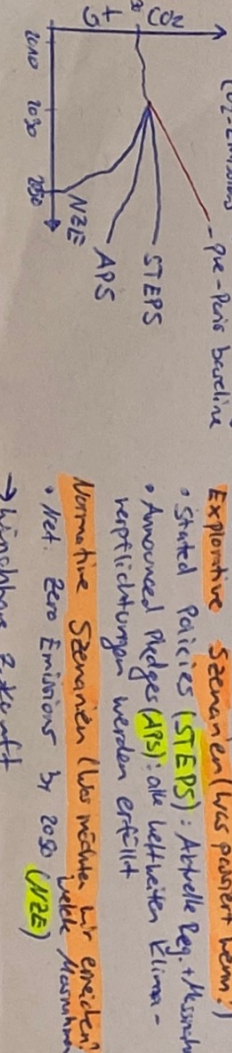 CO2-Emissions
Gt CO2
pre-Paris baseline
STEPS
APS
NZE
2010 2030 2050
Explorative Szenarien (Was passiert wenn?)
• Stated Policies (STEPS): Aktuelle Reg. +
• Announced Pledges (APS): alle weltweiten Klima-
verpflichtungen werden erfüllt
Normative Szenarien (Was möchten wir erreichen?
welche
• Net Zero Emissions by 2050 (NZE)
→ Zukunft